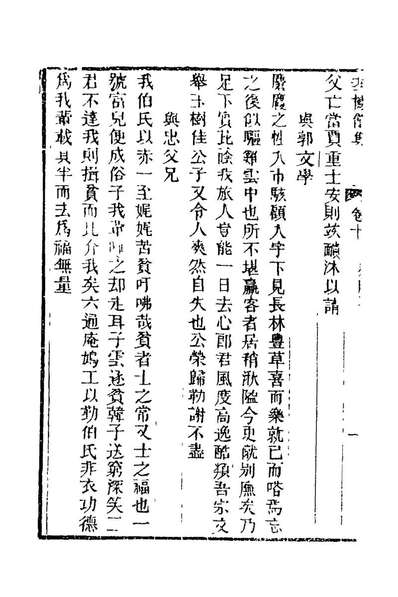 父亡當貰重士安則裁靧沐以請
與郭文學
麋麚之性入巿駭顧入宇下見長林豊草喜而樂就已而嗒焉忘
之後似驅雞雲中也所不堪羸客者居稍湫隘今更就別廡矣乃
足下實比餘我旅人豈能一日去心郎君風度高逸酷類吾宗文
舉玉樹佳公子又令人爽然自失也公榮歸勒謝不盡
與忠父兄
我伯氏以亦一至娓娓苦貧吁咈哉貧者士之常又士之福也一
號富兒便成俗子我輩 之却走耳子雲逐貧韓子送窮深笑二
君不達我則揖貧而比介我矣六通庵鳩工以勒伯氏非衣功德
爲我輩載其半而去爲福無量